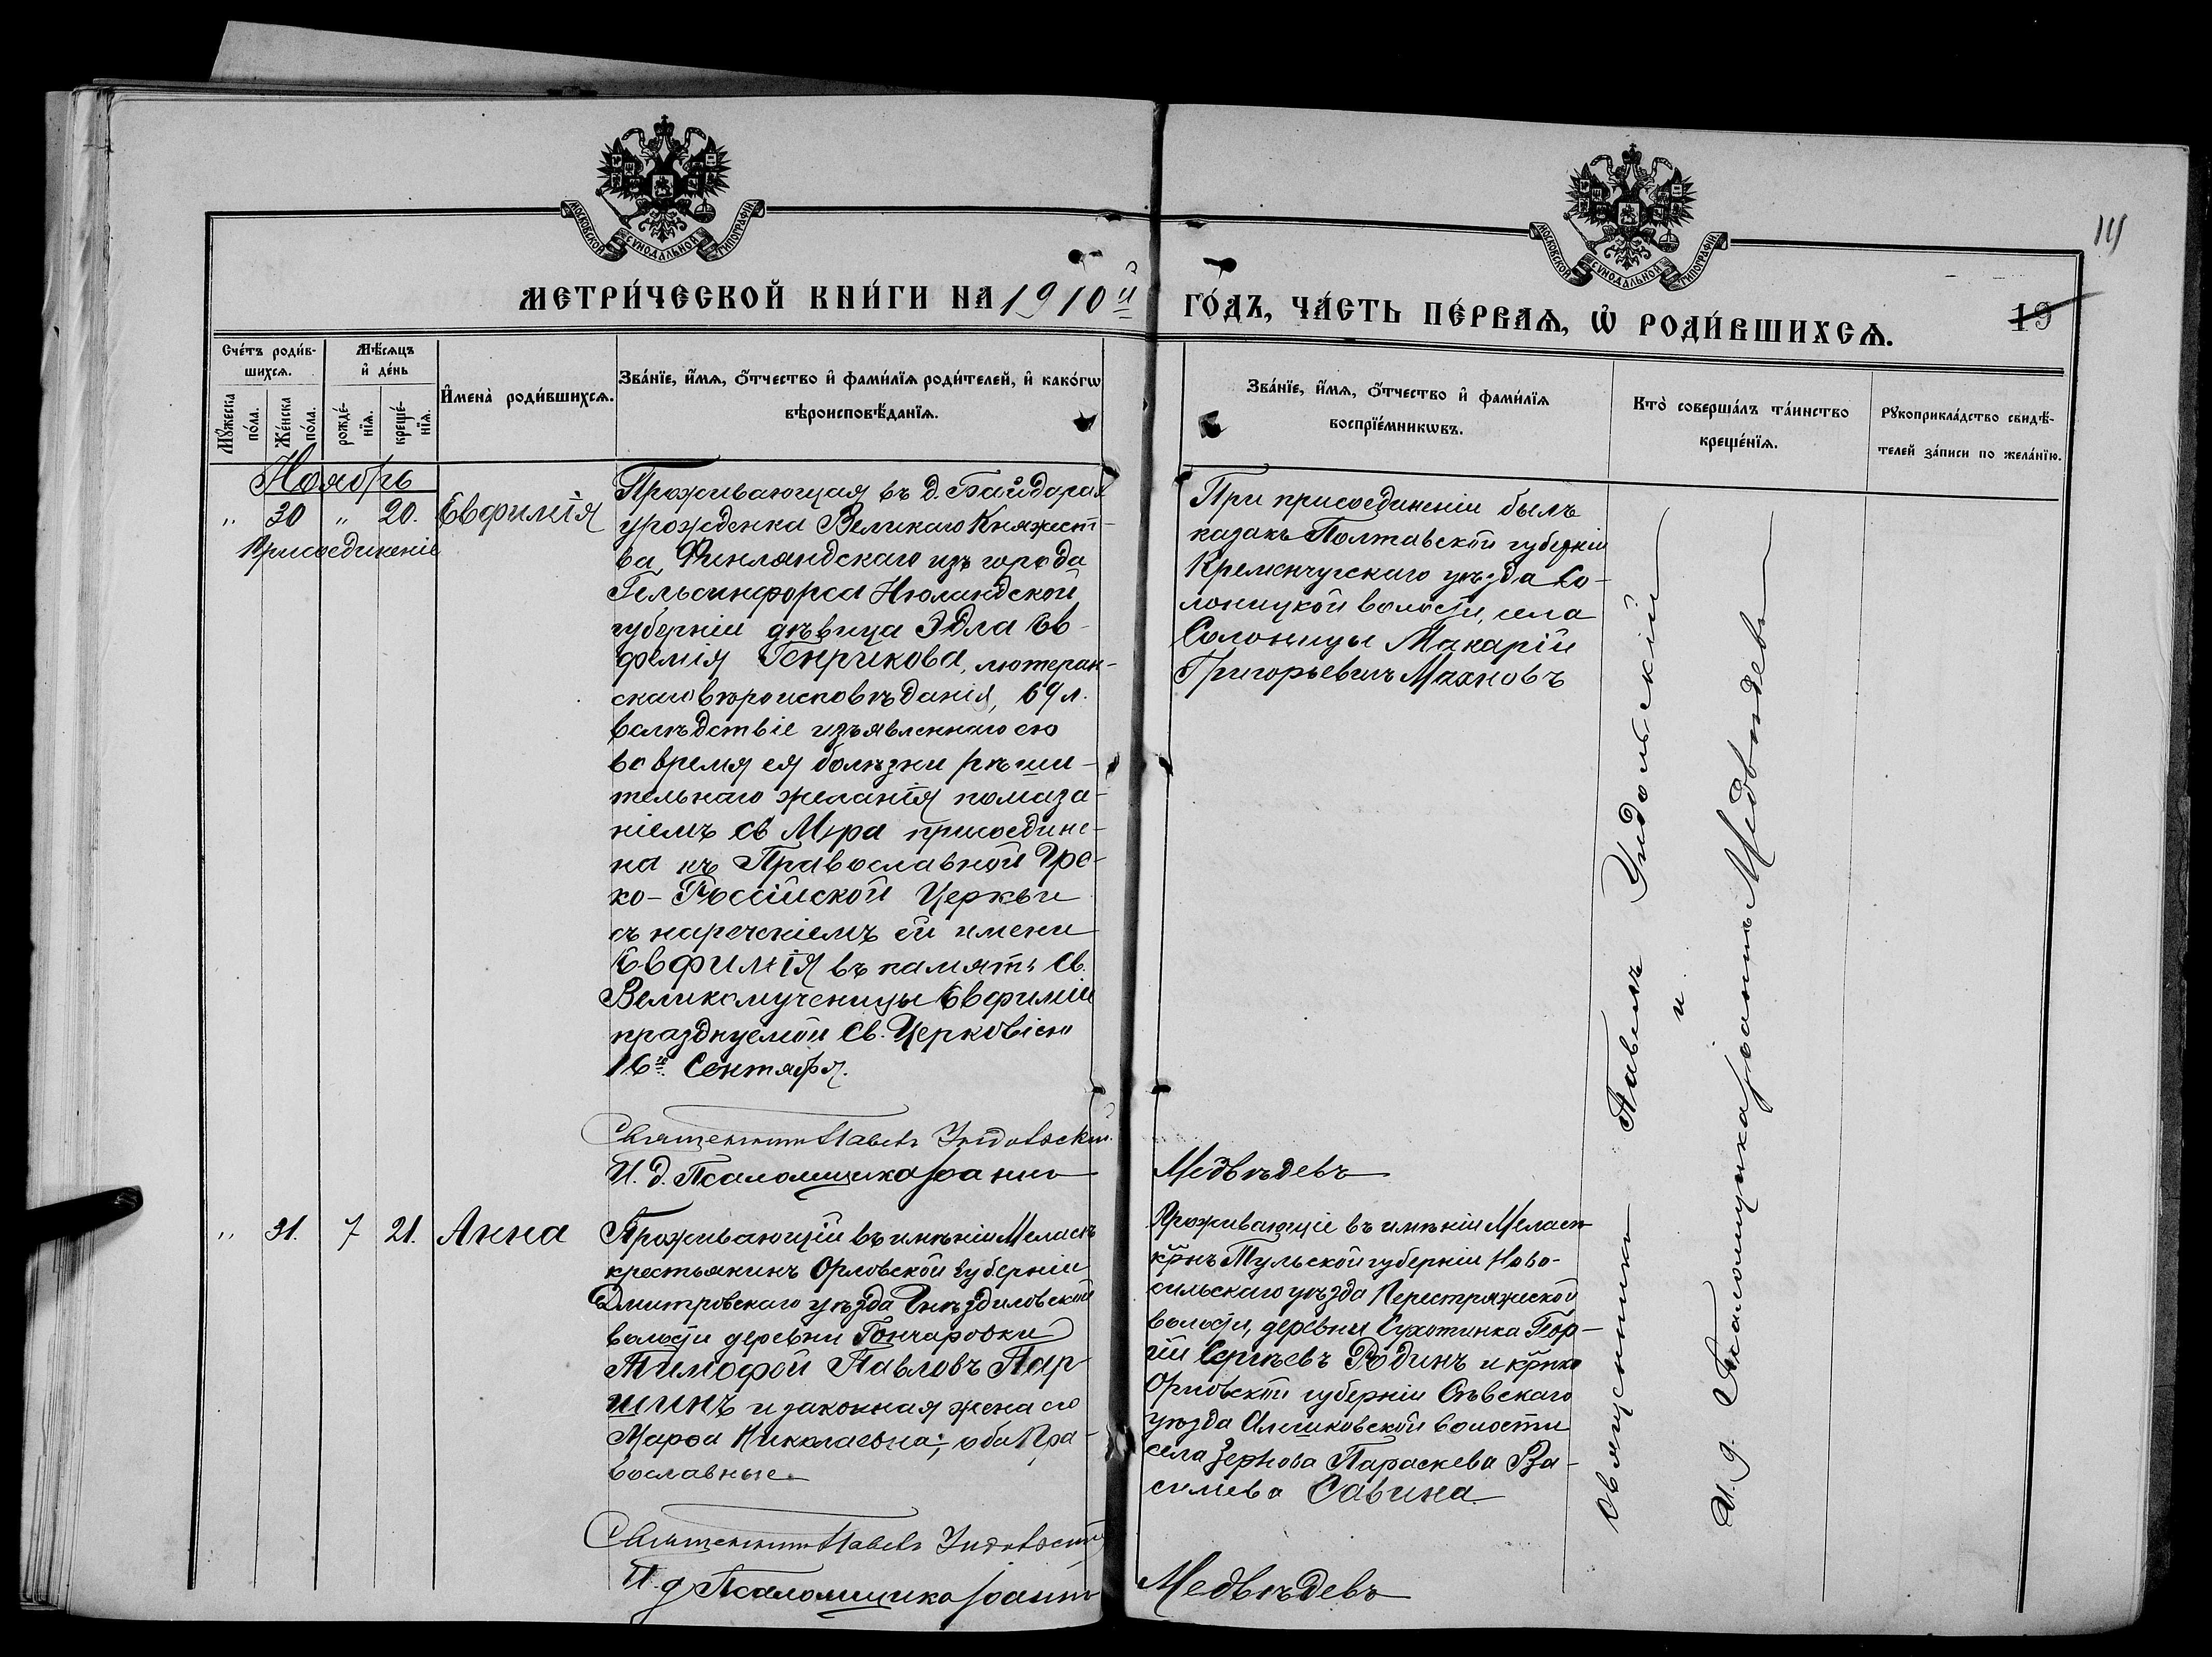 МОСКОВСКОЙ СѴНОДАЛЬНОЙ ТИПОГРАФІИ
МОСКОВСКОЙ СѴНОДАЛЬНОЙ ТИПОГРАФІИ
МЕТРИ́ЧЕСКОЙ КНИ́ГИ НА 1910й ГО́ДЪ, ЧА́СТЬ ПЕ́РВАѦ, Ѡ҆ РОДИ́ВШИХСѦ.
19
Сче́тъ роди́в-
шихсѧ.
Мꙋ́жеска по́ла.
Же́нска по́ла.
Мѣ́сѧцъ
и҆ де́нь
рожде́-
нїѧ.
креще́-
нїѧ.
И҆мена̀ роди́вшихсѧ.
Зва́нїе, и҆́мѧ, ѻ҆́тчество и҆ фами́лїѧ роди́телей, и҆ како́гѡ
вѣроисповѣ́данїѧ.
Зва́нїе, и҆́мѧ, ѻ҆́тчество и҆ фами́лїѧ
воспрїе́мникѡвъ.
Кто̀ соверша́лъ та́инство
креще́нїѧ.
Рꙋкоприкла́дство свидѣ́-
телей за́писи по жела́нїю.
Ноябрь
" 30 " 20. Евфимія
Присоединеніе
Проживающая въ д. Байдарах
урожденка Великаго Княжест-
ва Финляндскаго изъ города
Гельсингфорса Нюландской
губерніи дѣвица Эдла Ев-
фемія Генрикова, лютеран-
скаго вѣроисповѣданія, 69 л.
вслѣдствіе изъявленнаго ею
во время ея болѣзни рѣши-
тельнаго желанія помаза-
ніемъ св Мѵра присоедине-
на къ Православной Гре-
ко-Россійской Церкви
съ нареченіемъ ей имени
Евфимія въ память Св.
Великомученицы Евфиміи
празднуемой Св. Церковію
16го Сентября.
Священникъ Павелъ Ундольскій.
И. д. Псаломщика Іоаннъ Медвѣдевъ
При присоединеніи былъ
казакъ Полтавской губерніи
Кременчугскаго уѣзда Со-
лоницкой волости, села
Солоницы Макарій
Григорьевичъ Махновъ
" 31. 7 21. Анна
Проживающій въ имѣніи Меласъ
крестьянинъ Орловской губерніи
Дмитровскаго уѣзда Гнѣздиловской
волости деревни Гончаровки
Тимофей Павловъ Пар-
шинъ и законная жена его
Марфа Николаевна; оба Пра-
вославные.
Священникъ Павелъ Ундольскій
И. д Псаломщика Іоаннъ Медвѣдевъ
Проживающіе въ имѣніи Меласъ
крнъ Тульской губерніи Ново-
сильскаго уѣзда Перестряжской
волости, деревни Сухотинка Геор-
гій Сергѣевъ Родинъ и крнка
Орловской губерніи Сѣвскаго
уѣзда Алешковской волости
села Зернова Параскева Ва-
сильева Савина
Священникъ Павелъ Ундольскій
и
И. д. Псаломщика Іоаннъ Медвѣдевъ